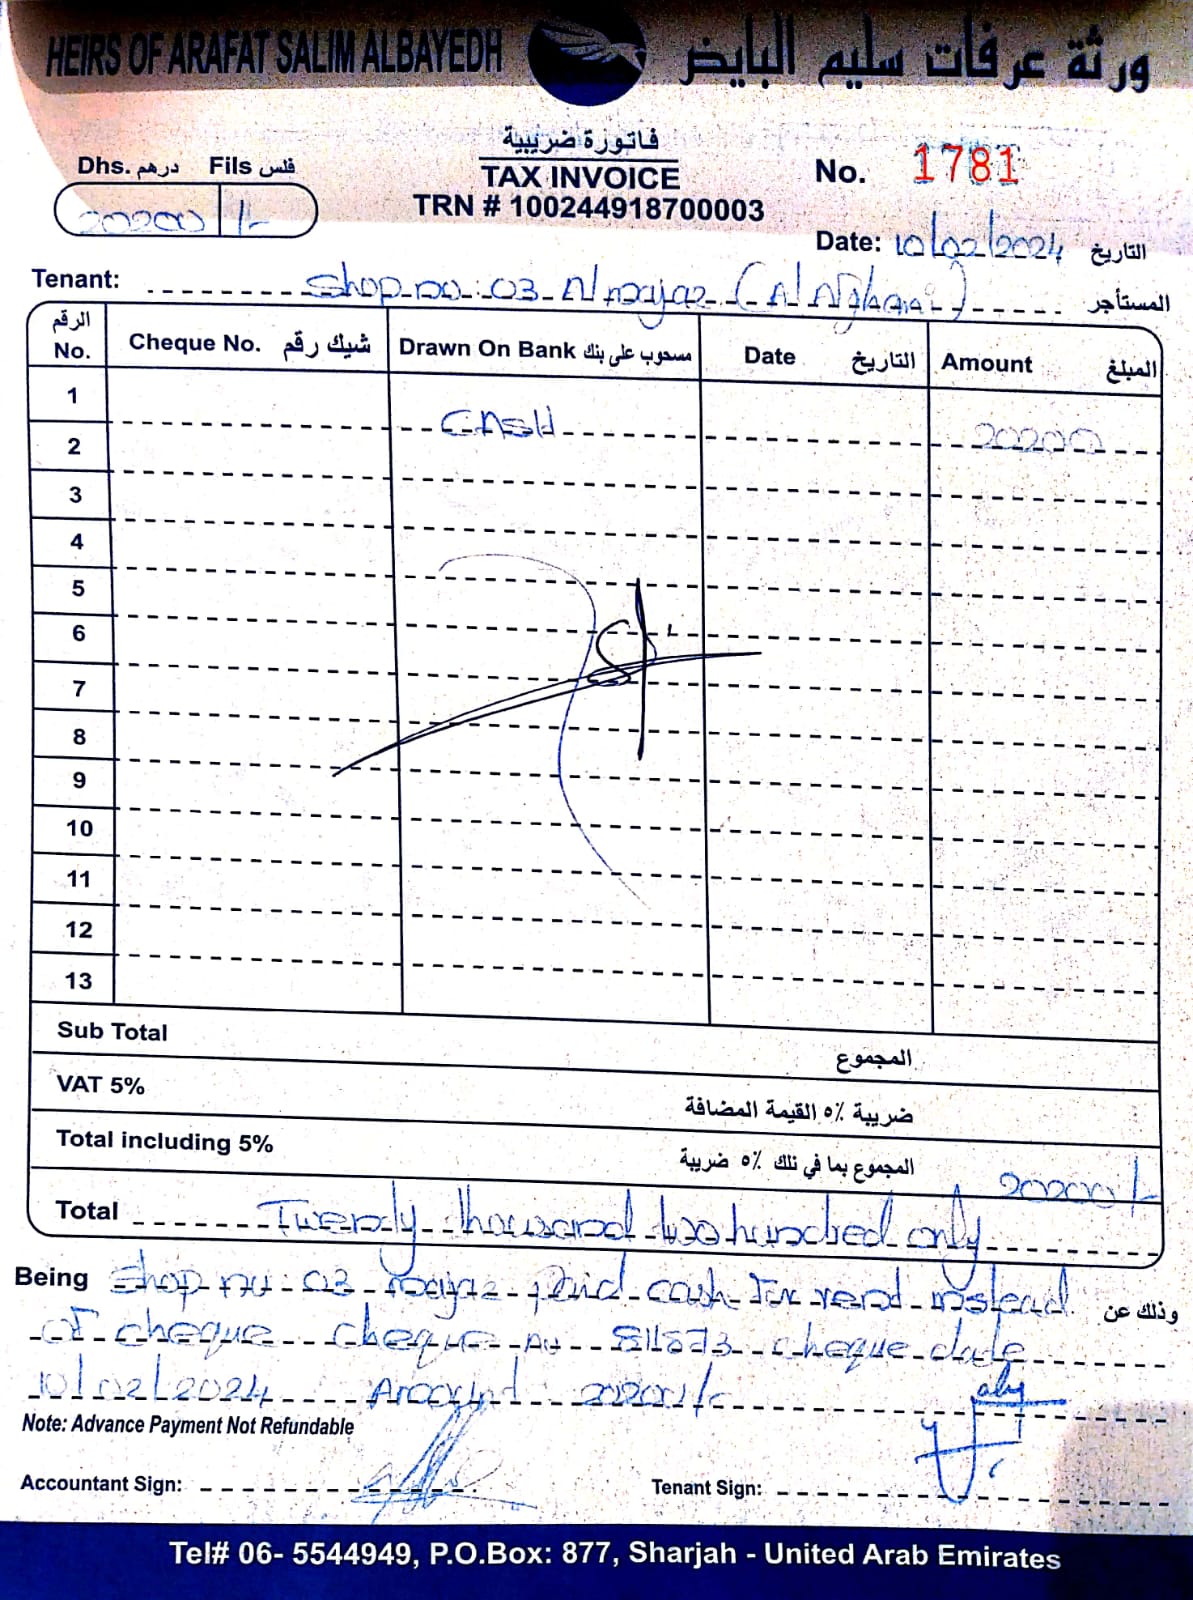 HEIRS OF ARAFAT SALIM ALBAYEDH ورثة عرفات سليم البايض
فاتورة ضريبية
TAX INVOICE
TRN # 100244918700003
Dhs. درهم Fils فلس
20200 /-
No. 1781
Date: 10/02/2024 التاريخ
Tenant: Shop no: 03 Al majaz (Al Afghani) المستأجر
الرقم No. Cheque No. شيك رقم Drawn On Bank مسحوب على بنك Date التاريخ Amount المبلغ
1 CASH 20200
2
3
4
5
6
7
8
9
10
11
12
13
Sub Total المجموع
VAT 5% ضريبة ٥٪ القيمة المضافة
Total including 5% المجموع بما في ذلك ٥٪ ضريبة 20200/-
Total Twenty thousand two hundred only
Being Shop no: 03 majaz paid cash for rent instead وذلك عن
of cheque cheque no 811573 cheque date
10/02/2024 Amount 20200/-
Note: Advance Payment Not Refundable
Accountant Sign: Tenant Sign:
Tel# 06- 5544949, P.O.Box: 877, Sharjah - United Arab Emirates